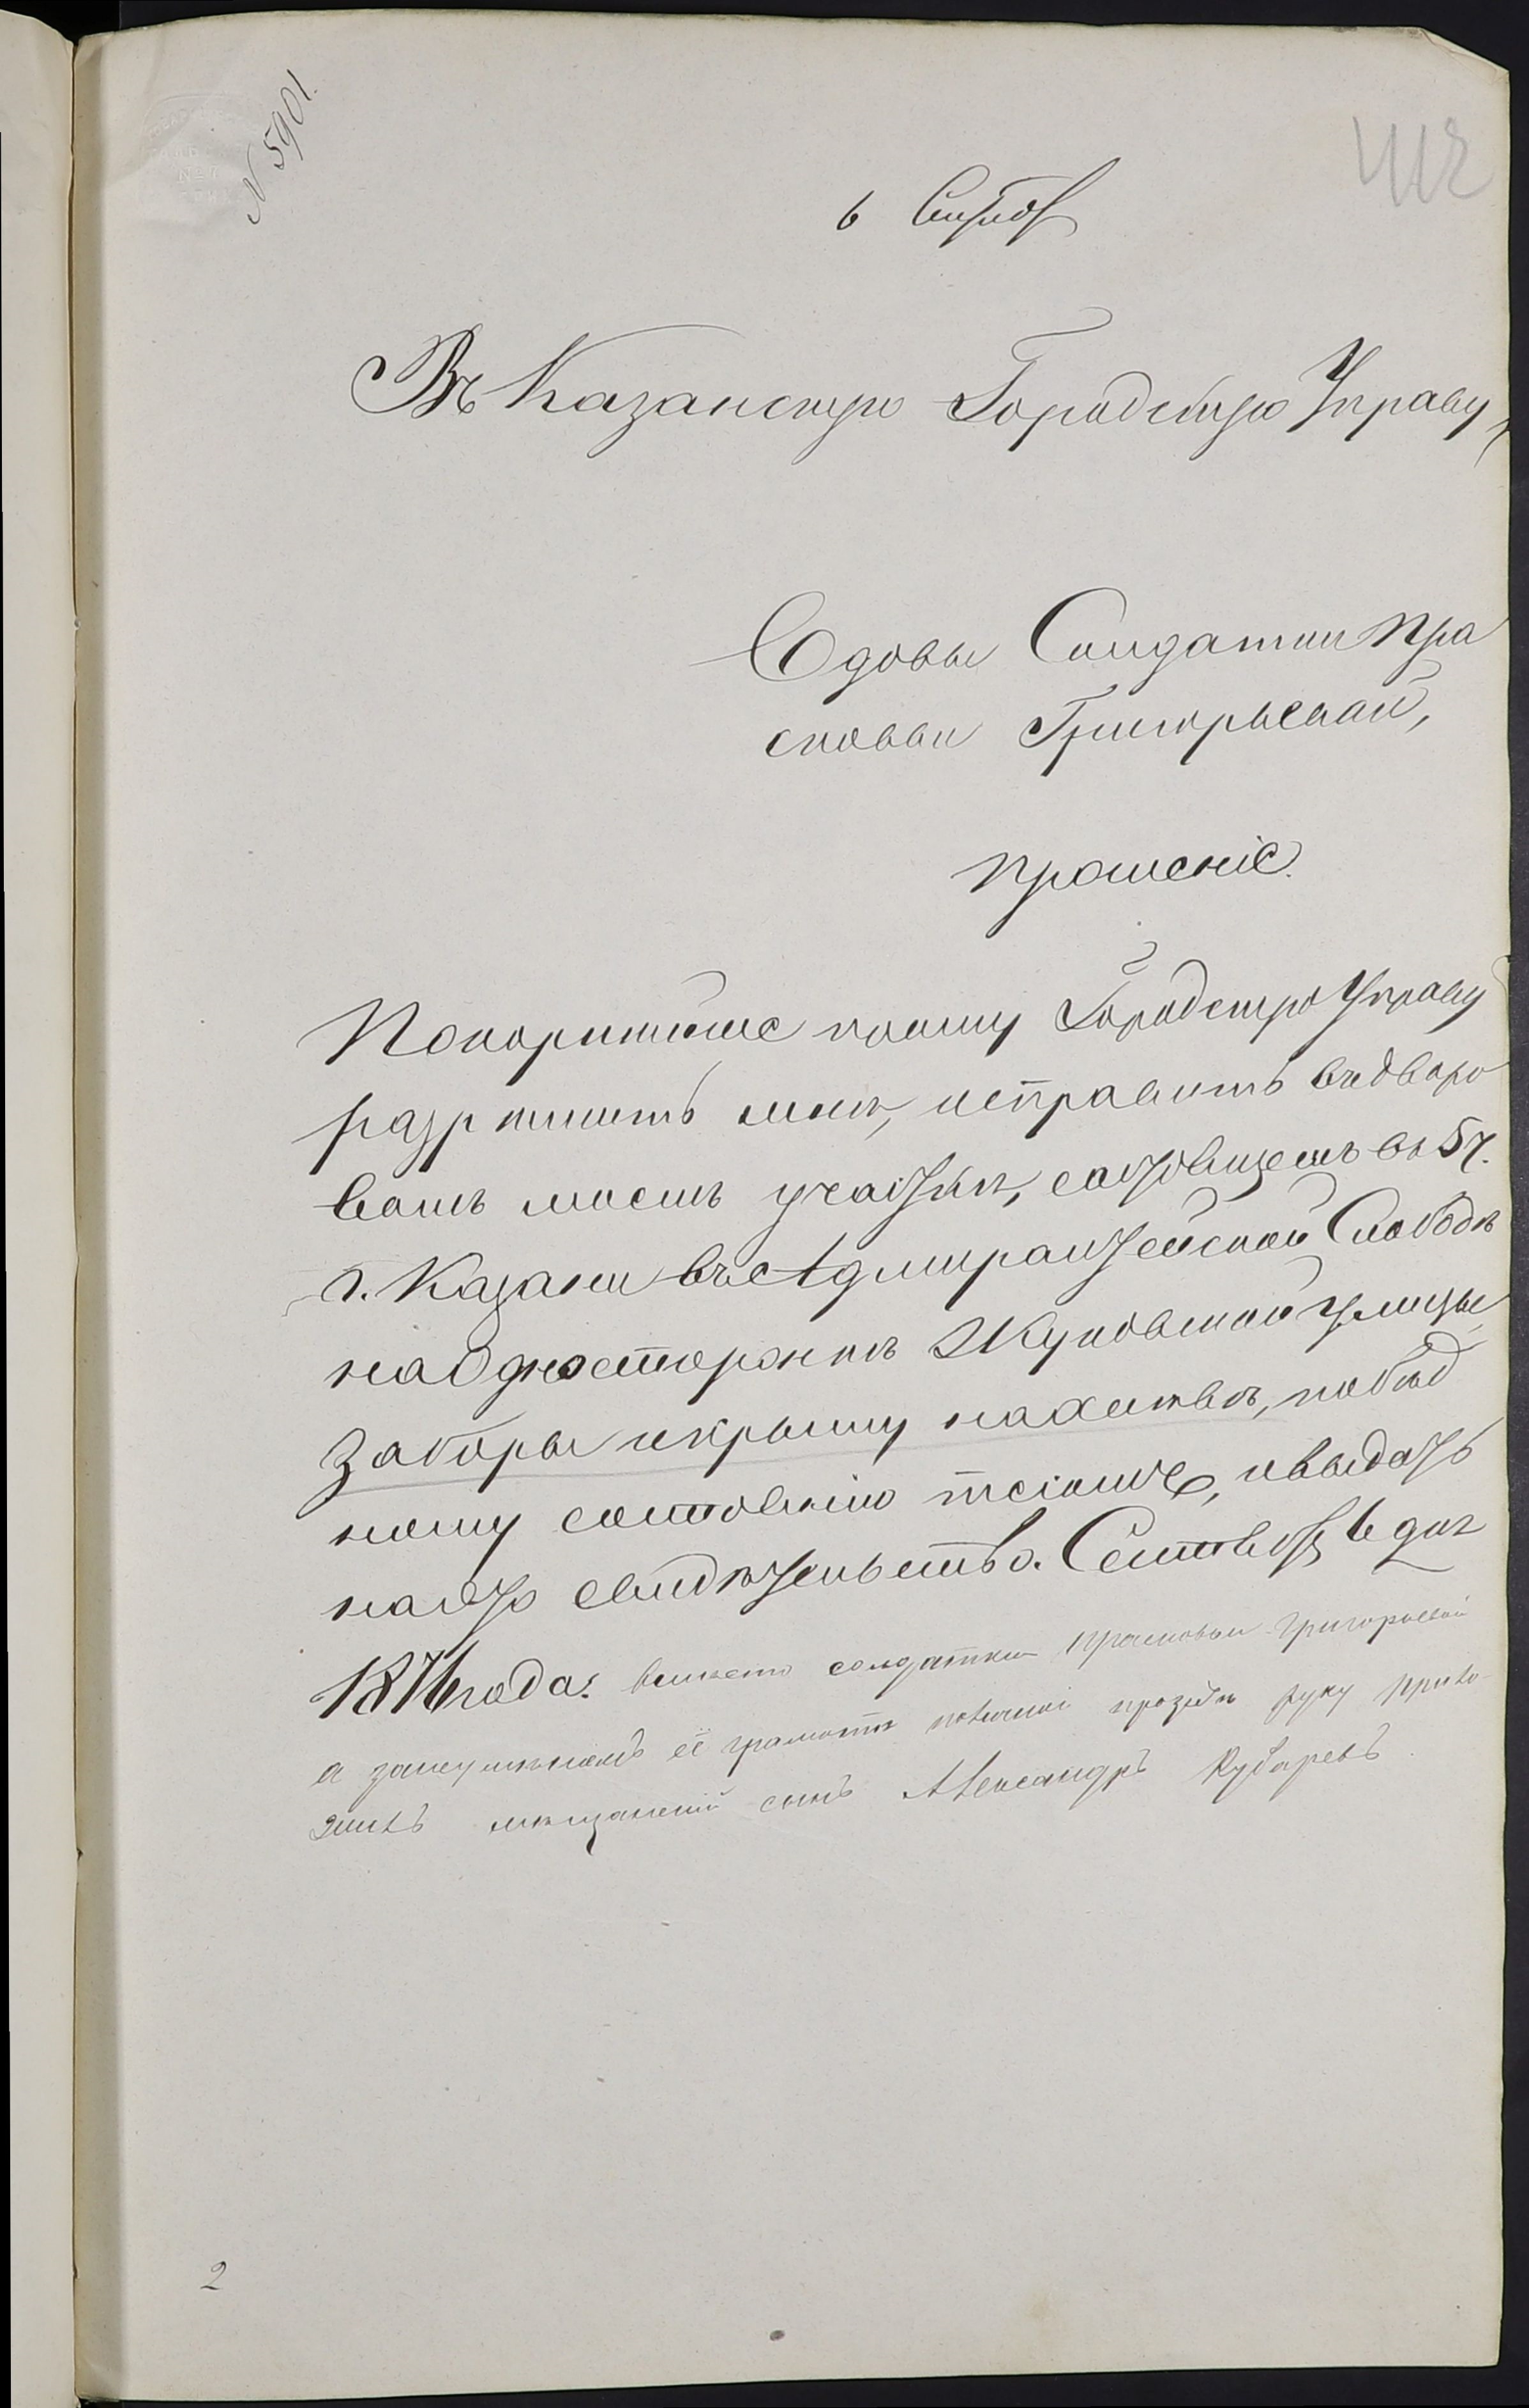 N 5901.
412
6 Сентяб
Въ Казанскую Городскую Управу,
Вдовы Солдатки Пра
сковьи Григорьевой,
Прошеніе.
Покорнѣйше прошу Городскую Управу
разрѣшить мнѣ, исправить въ дворо
вомъ моемъ участкѣ, состоящемъ въ 5 ч.
г. Казани въ Адмиралтейской Слободѣ
на Одностороннѣ Жуковской улицы
Заборы и крышу на хлѣвѣ, по бѣд
ному состоянію, и выдать
на это свидѣтельство. Сентября 6 дня
1876 года. вмѣсто солдатки Прасковьи Григорьевой
а за неумѣніемъ её грамотѣ по личной прозьбѣ руку прило
жилъ мѣщанскій сынъ Александръ Кубаревъ
2